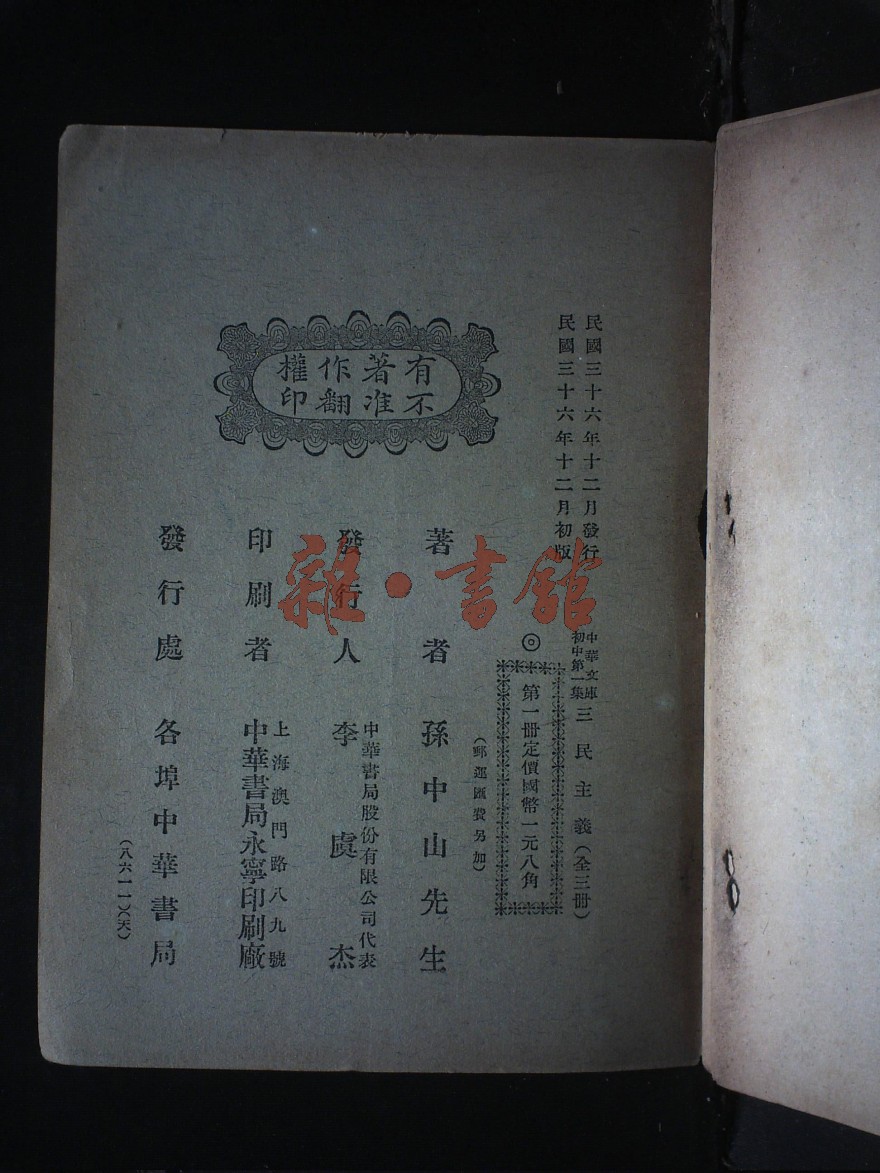 民國三十六年十二月發行
民國三十六年十二月初版
中華文庫
初中第一集
三民主義（全三冊）
◎
第一冊定價國幣一元八角
（郵運匯費另加）
有著作權
不准翻印
著者 孫中山先生
發行人
中華書局股份有限公司代表
李虞杰
印刷者
上海澳門路八九號
中華書局永寧印刷廠
發行處 各埠中華書局
（八六一一）（天）
雜·書館